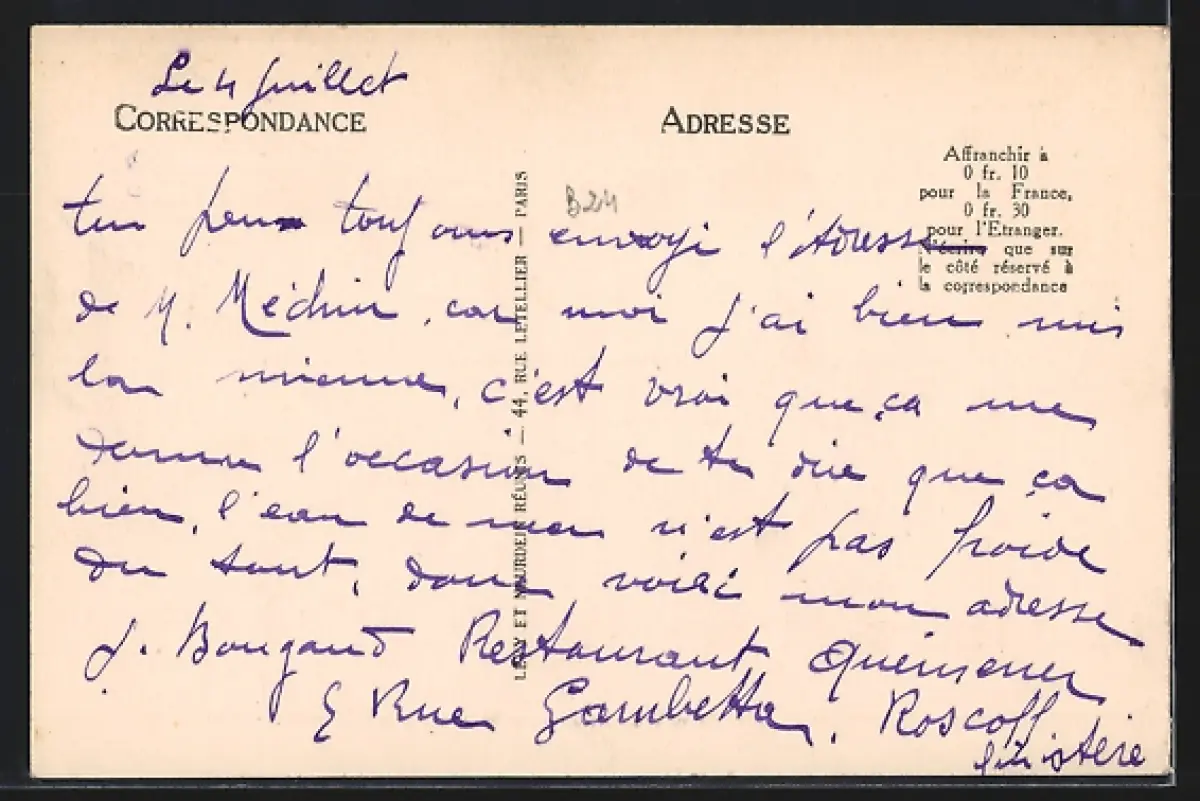 Le 4 Juillet
CORRESPONDANCE
ADRESSE
Affranchir à
0 fr. 10
pour la France,
0 fr. 30
pour l'Etranger.
N'écrire que sur
le côté réservé à
la correspondance
B24
LEVY ET NEURDEIN RÉUNIS — 44, RUE LETELLIER — PARIS
tu peux toujours envoyé l'adresse
de M. Méchin, car moi j'ai bien mis
la mienne, c'est vrai que ça me
donne l'occasion de te dire que ça
bien, l'eau de mer n'est pas froide
du tout, donc voilà mon adresse
J. Bougaud Restaurant Quéméner
Rue Gambetta, Roscoff
finistère